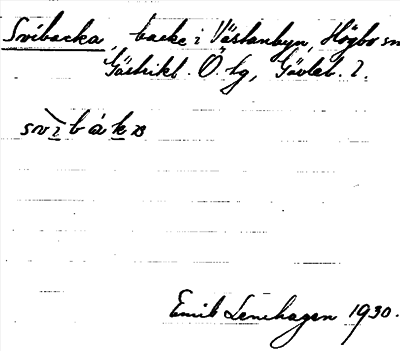 Svibacka backe i Västanbyn, Högbo sn
Gästrikl. Ö. tg, Gävleb. l.
svìbákа
Emil Lenehagen 1930.